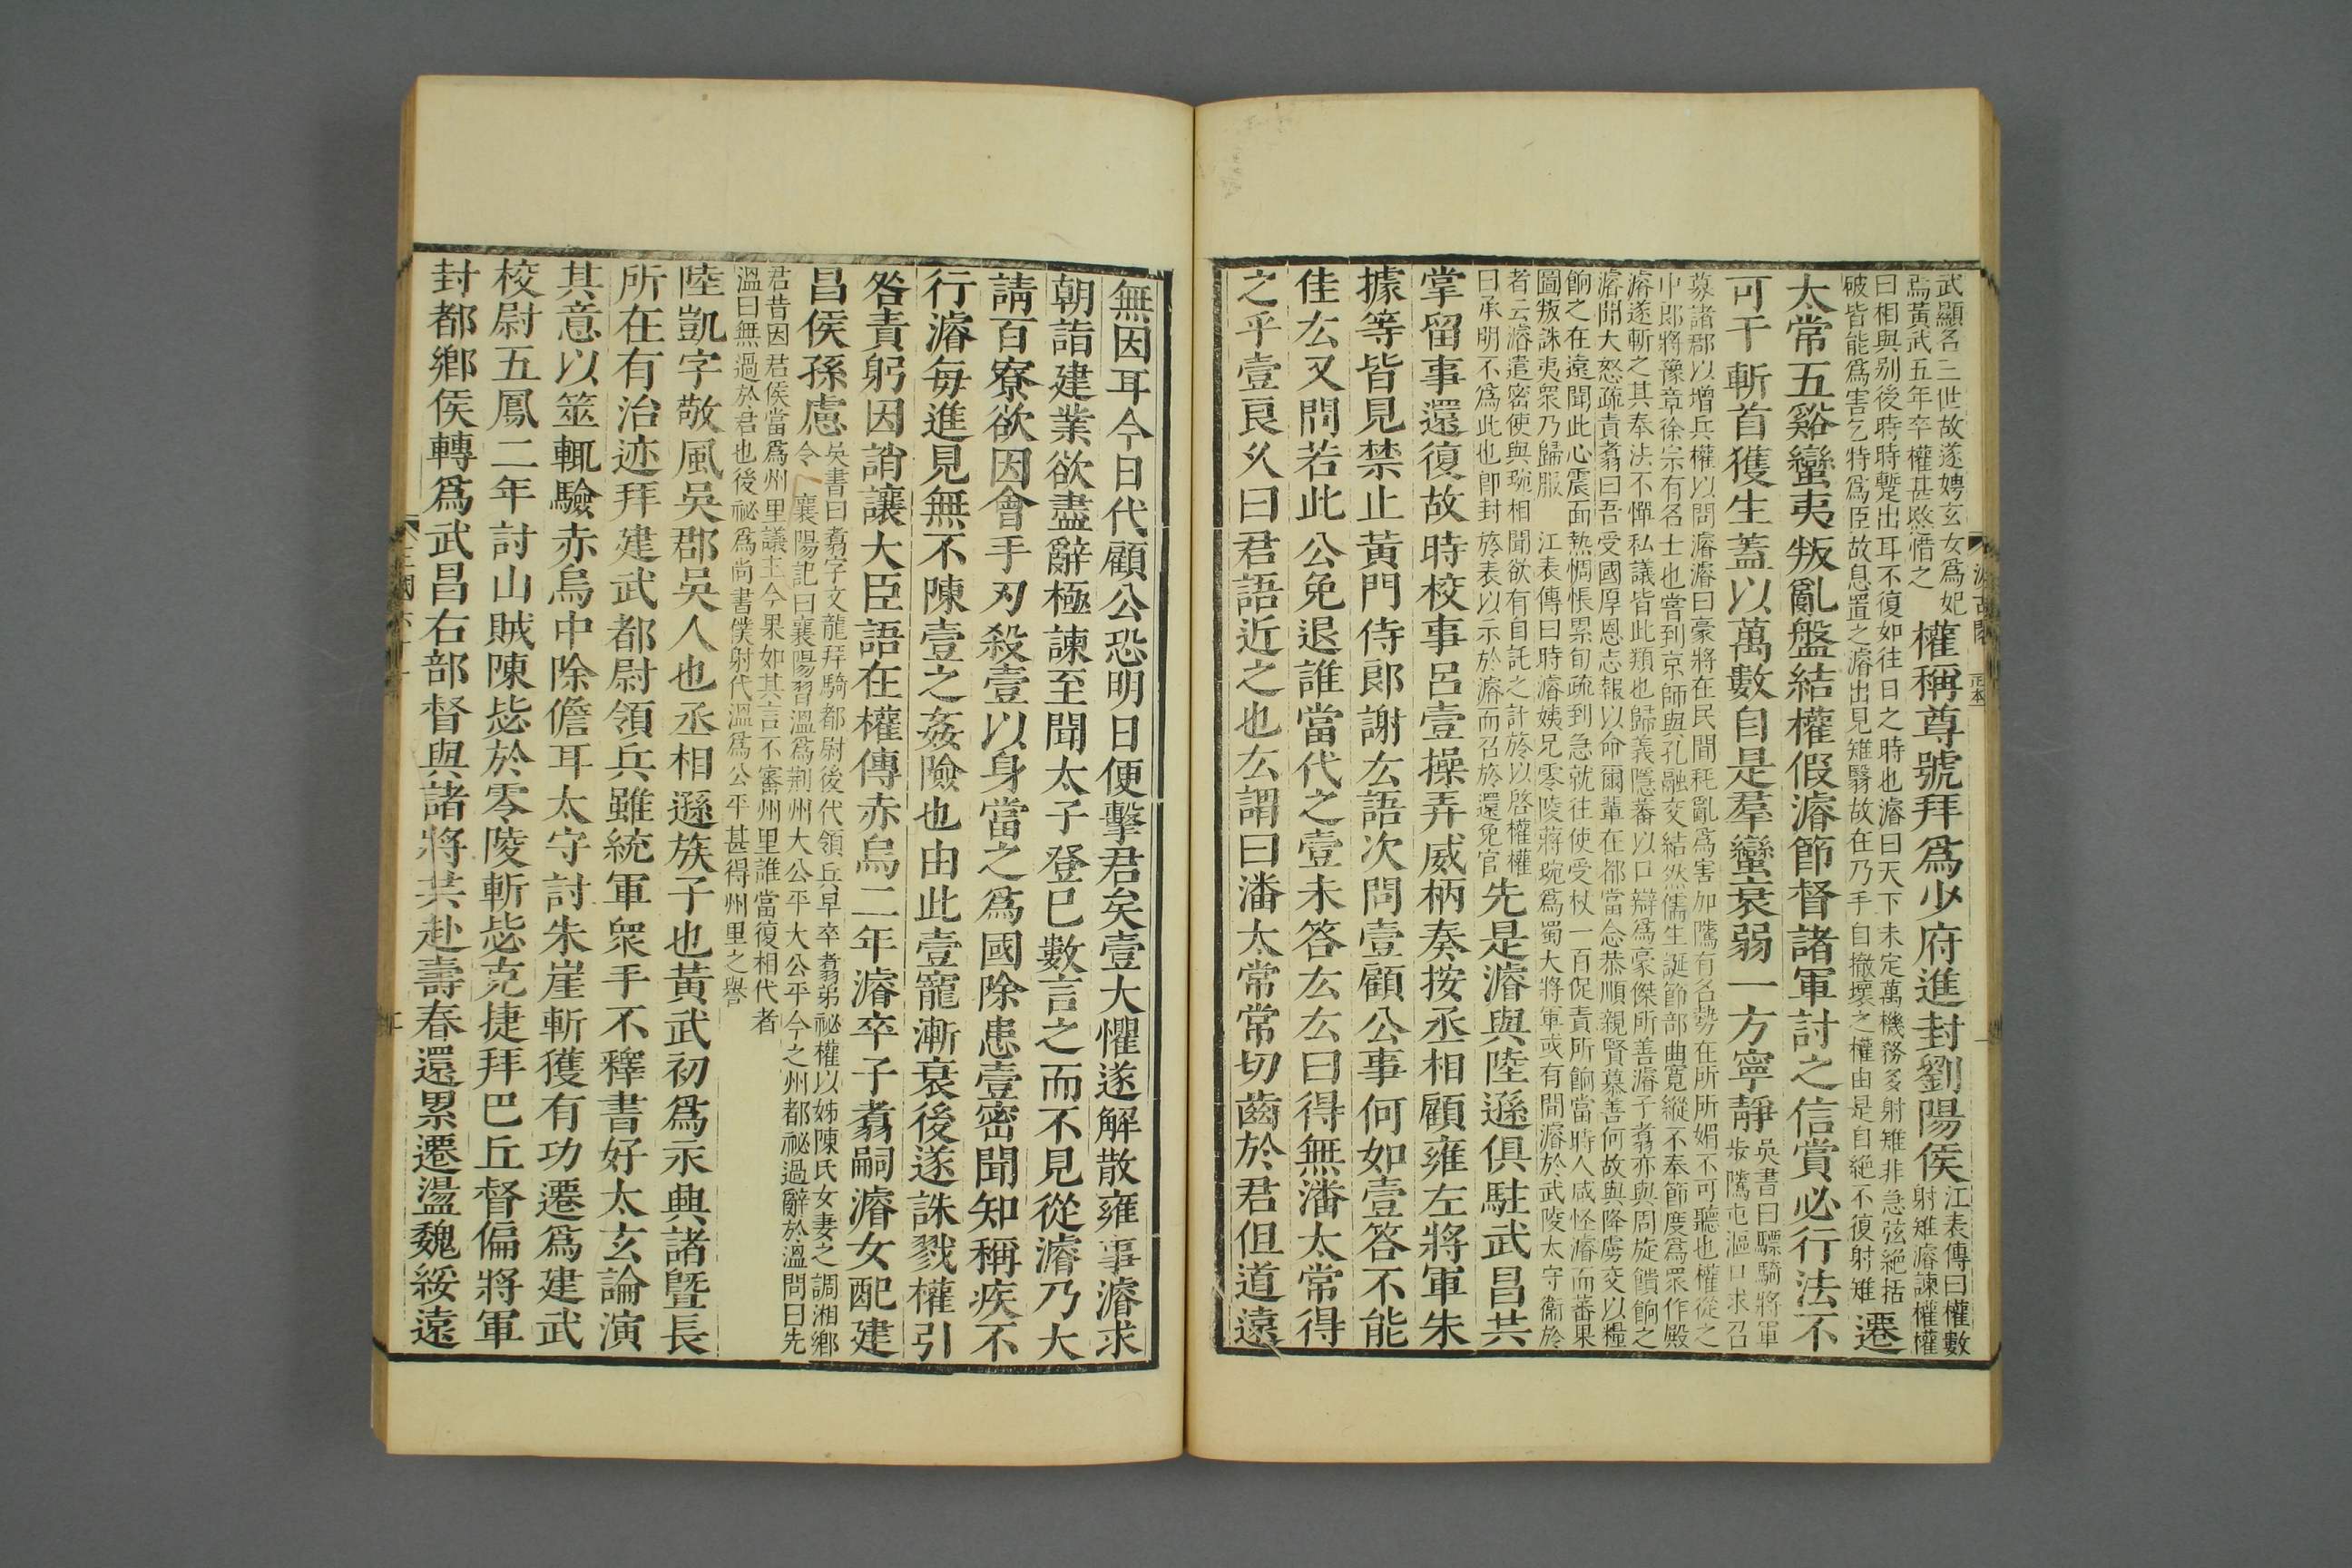 武顯名三世故遂娉玄女爲妃
焉黃武五年卒權甚愍惜之
權稱尊號拜爲少府進封劉陽侯
江表傳曰權數
射雉濬諫權權
曰相與別後時時蹔出耳不復如往日之時也濬曰天下未定萬機務多射雉非急弦絕括
破皆能爲害乞特爲臣故息置之濬出見雉翳故在乃手自撤壞之權由是自絕不復射雉
遷
太常五谿蠻夷叛亂盤結權假濬節督諸軍討之信賞必行法不
可干斬首獲生蓋以萬數自是羣蠻衰弱一方寧靜
吳書曰驃騎將軍
步騭屯漚口求召
募諸郡以增兵權以問濬濬曰豪將在民間秏亂爲害加騭有名勢在所所媚不可聽也權從之
中郎將豫章徐宗有名士也嘗到京師與孔融交結然儒生誕節部曲寬縱不奉節度爲眾作殿
濬遂斬之其奉法不憚私議皆此類也歸義隱蕃以口辯爲豪傑所善濬子翥亦與周旋饋餉之
濬聞大怒疏責翥曰吾受國厚恩志報以命爾輩在都當念恭順親賢慕善何故與降虜交以糧
餉之在遠聞此心震面熱惆悵累旬疏到急就往使受杖一百促責所餉當時人咸怪濬而蕃果
圖叛誅夷衆乃歸服 江表傳曰時濬姨兄零陵蔣琬爲蜀大將軍或有間濬於武陵太守衞於
者云濬遣密使與琬相聞欲有自託之計於以啓權權
曰承明不爲此也卽封於表以示於濬而召於還免官
先是濬與陸遜俱駐武昌共
掌留事還復故時校事呂壹操弄威柄奏按丞相顧雍左將軍朱
據等皆見禁止黃門侍郎謝厷語次問壹顧公事何如壹答不能
佳厷又問若此公免退誰當代之壹未答厷厷曰得無潘太常得
之乎壹良久曰君語近之也厷謂曰潘太常常切齒於君但道遠
無因耳今日代顧公恐明日便擊君矣壹大懼遂解散雍事濬求
朝詣建業欲盡辭極諫至聞太子登已數言之而不見從濬乃大
請百寮欲因會手刃殺壹以身當之爲國除患壹密聞知稱疾不
行濬每進見無不陳壹之姦險也由此壹寵漸衰後遂誅戮權引
咎責躬因誚讓大臣語在權傳赤烏二年濬卒子翥嗣濬女配建
昌侯孫慮
吳書曰翥字文龍拜騎都尉後代領兵早卒翥弟祕權以姊陳氏女妻之調湘鄉
令 襄陽記曰襄陽習溫爲荆州大公平大公平今之州都祕過辭於溫問曰先
君昔因君侯當爲州里議主今果如其言不審州里誰當復相代者
溫曰無過於君也後祕爲尚書僕射代溫爲公平甚得州里之譽
陸凱字敬風吳郡吳人也丞相遜族子也黃武初爲永興諸曁長
所在有治迹拜建武都尉領兵雖統軍衆手不釋書好太玄論演
其意以筮輒驗赤烏中除儋耳太守討朱崖斬獲有功遷爲建武
校尉五鳳二年討山賊陳毖於零陵斬毖克捷拜巴丘督偏將軍
封都鄉侯轉爲武昌右部督與諸將共赴壽春還累遷盪魏綏遠